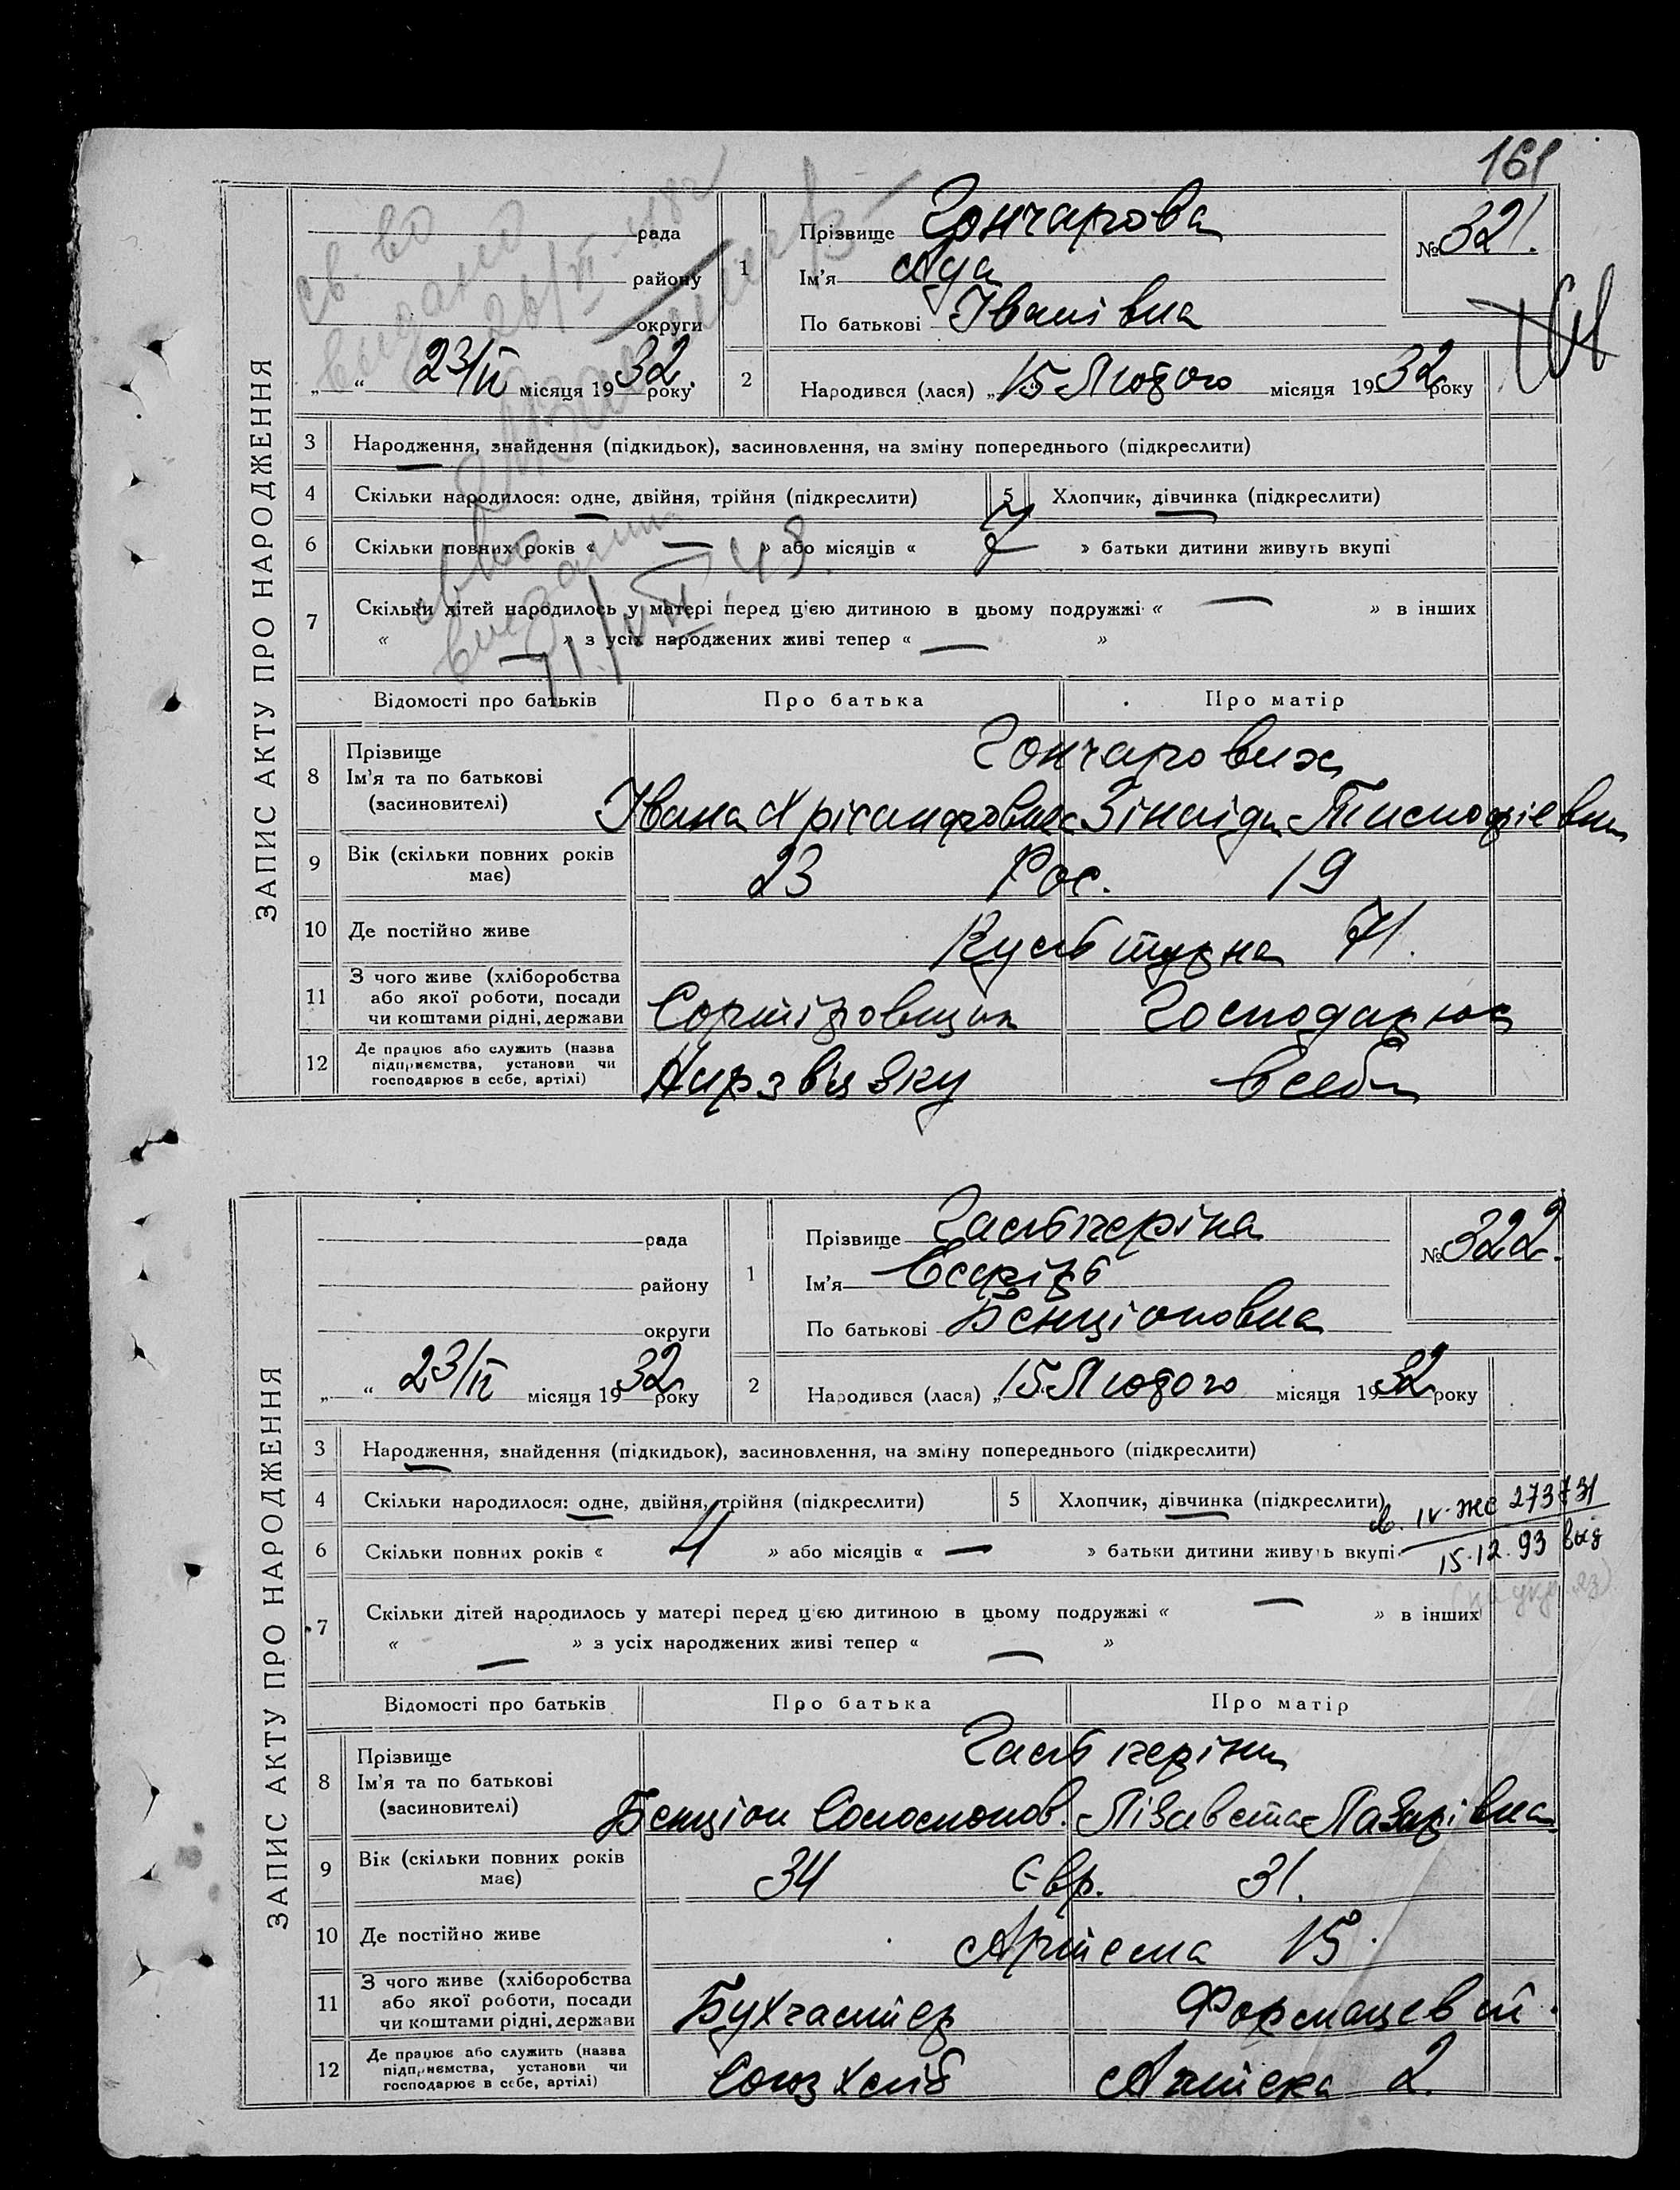 161
ЗАПИС АКТУ ПРО НАРОДЖЕННЯ
св. во
видано
рада
району
округи
„ “ 23/IV місяця 1932 року
1
Прізвище Гончарова
Ім'я Ада
По батькові Іванівна
№ 321.
2
Народився (лася) „15 Лютого місяця 1932 року
3 Народження, знайдення (підкидьок), засиновлення, на зміну попереднього (підкреслити)
4 Скільки народилося: одне, двійня, трійня (підкреслити)
5 Хлопчик, дівчинка (підкреслити)
6 Скільки повних років « — » або місяців « 7 » батьки дитини живуть вкупі
7 Скільки дітей народилось у матері перед цією дитиною в цьому подружжі « — » в інших
« — » з усіх народжених живі тепер « — »
Відомості про батьків Про батька Про матір
8 Прізвище
Ім'я та по батькові
(засиновителі)
Гончарових
Івана Зінаіда
9 Вік (скільки повних років має)
23 Рос. 19
10 Де постійно живе
Культурна 71.
11 З чого живе (хліборобства
або якої роботи, посади
чи коштами рідні, держави
Сортіровщик Господарює
12 Де працює або служить (назва
підприємства, установи чи
господарює в себе, артілі)
Нарзвіязку в себе
ЗАПИС АКТУ ПРО НАРОДЖЕННЯ
рада
району
округи
„ “ 23/IV місяця 1932 року
1
Прізвище Гальперіна
Ім'я
По батькові Бенціоновна
№ 322.
2
Народився (лася) „15 Лютого місяця 1932 року
3 Народження, знайдення (підкидьок), засиновлення, на зміну попереднього (підкреслити)
4 Скільки народилося: одне, двійня, трійня (підкреслити)
5 Хлопчик, дівчинка (підкреслити)
св. IV-ЖС 273731
15.12.93 выд
(на укр. яз)
6 Скільки повних років « 4 » або місяців « — » батьки дитини живуть вкупі
7 Скільки дітей народилось у матері перед цією дитиною в цьому подружжі « — » в інших
« — » з усіх народжених живі тепер « — »
Відомості про батьків Про батька Про матір
8 Прізвище
Ім'я та по батькові
(засиновителі)
Гальперіни
Бенціон Соломонов. Лізавета Лазарівна
9 Вік (скільки повних років має)
34 Євр. 31.
10 Де постійно живе
Артема 15
11 З чого живе (хліборобства
або якої роботи, посади
чи коштами рідні, держави
Бухгалтер Формацевт
12 Де працює або служить (назва
підприємства, установи чи
господарює в себе, артілі)
Союзхліб Аптека 2.